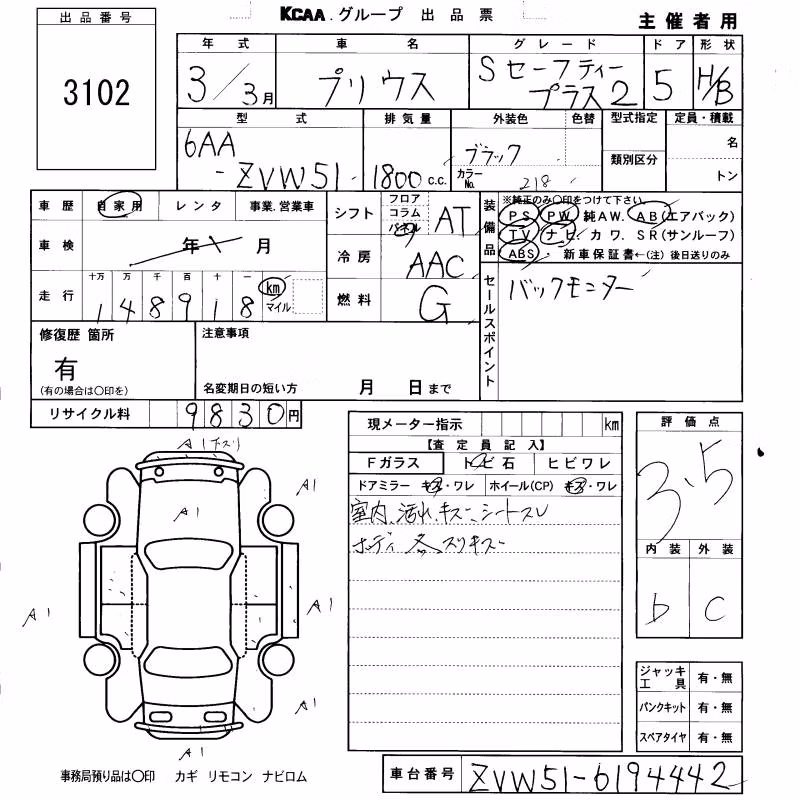 出品番号
3102
KCAA.グループ 出品票
主催者用
年式 車名 グレード ドア 形状
3/3月 プリウス Sセーフティー プラス2 5 H/B
型式 排気量 外装色 色替 型式指定 定員・積載
6AA-ZVW51 1800c.c. ブラック
カラーNo. 218
類別区分 名
トン
車歴 自家用 レンタ 事業.営業車
シフト フロア コラム パネル AT
装備品 ※純正のみ○印をつけて下さい。
PS PW 純AW. AB(エアバック)
TV ナビ. カワ. SR(サンルーフ)
ABS. 新車保証書←(注)後日送りのみ
車検 年 月
冷房 AAC
走行 十万 万 千 百 十 一
148918 km マイル
燃料 G
セールスポイント バックモニター
修復歴 箇所
有
(有の場合は○印を)
注意事項
名変期日の短い方 月 日まで
リサイクル料 9830円
現メーター指示 km
【査定員記入】
Fガラス トビ石 ヒビワレ
ドアミラー キズ・ワレ ホイール(CP) キズ・ワレ
室内、汚れ、キズ、シートスレ
ボディ 各スリキズ
評価点
3.5
内装 外装
b C
A1(下スリ)
A1
A1
A1
A1
A1
A1
A1
ジャッキ工具 有・無
パンクキット 有・無
スペアタイヤ 有・無
事務局預り品は○印 カギ リモコン ナビロム
車台番号 ZVW51-6194442